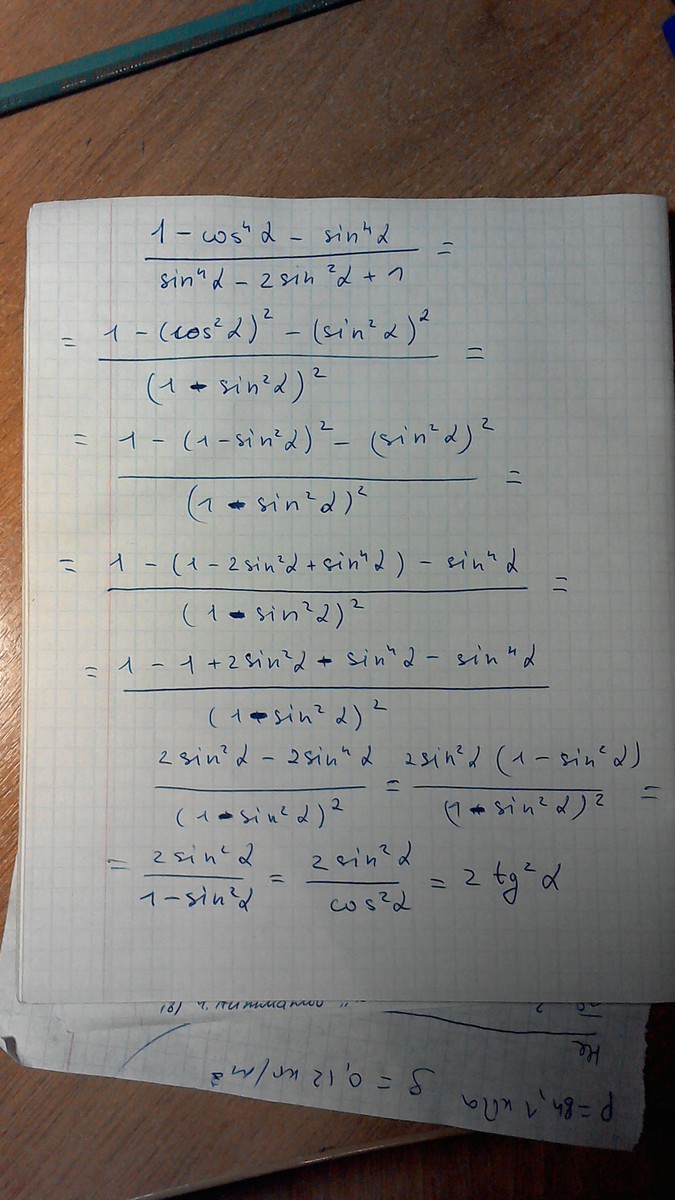 1 - cos⁴α - sin⁴α =
sin⁴α - 2sin²α + 1
= 1 - (cos²α)² - (sin²α)² =
(1 - sin²α)²
= 1 - (1 - sin²α)² - (sin²α)² =
(1 - sin²α)²
= 1 - (1 - 2sin²α + sin⁴α) - sin⁴α =
(1 - sin²α)²
= 1 - 1 + 2sin²α - sin⁴α - sin⁴α
(1 - sin²α)²
2sin²α - 2sin⁴α = 2sin²α (1 - sin²α) =
(1 - sin²α)² (1 - sin²α)²
= 2sin²α = 2sin²α = 2 tg²α
1 - sin²α cos²α
He
ρ = 0,12 кг/м³